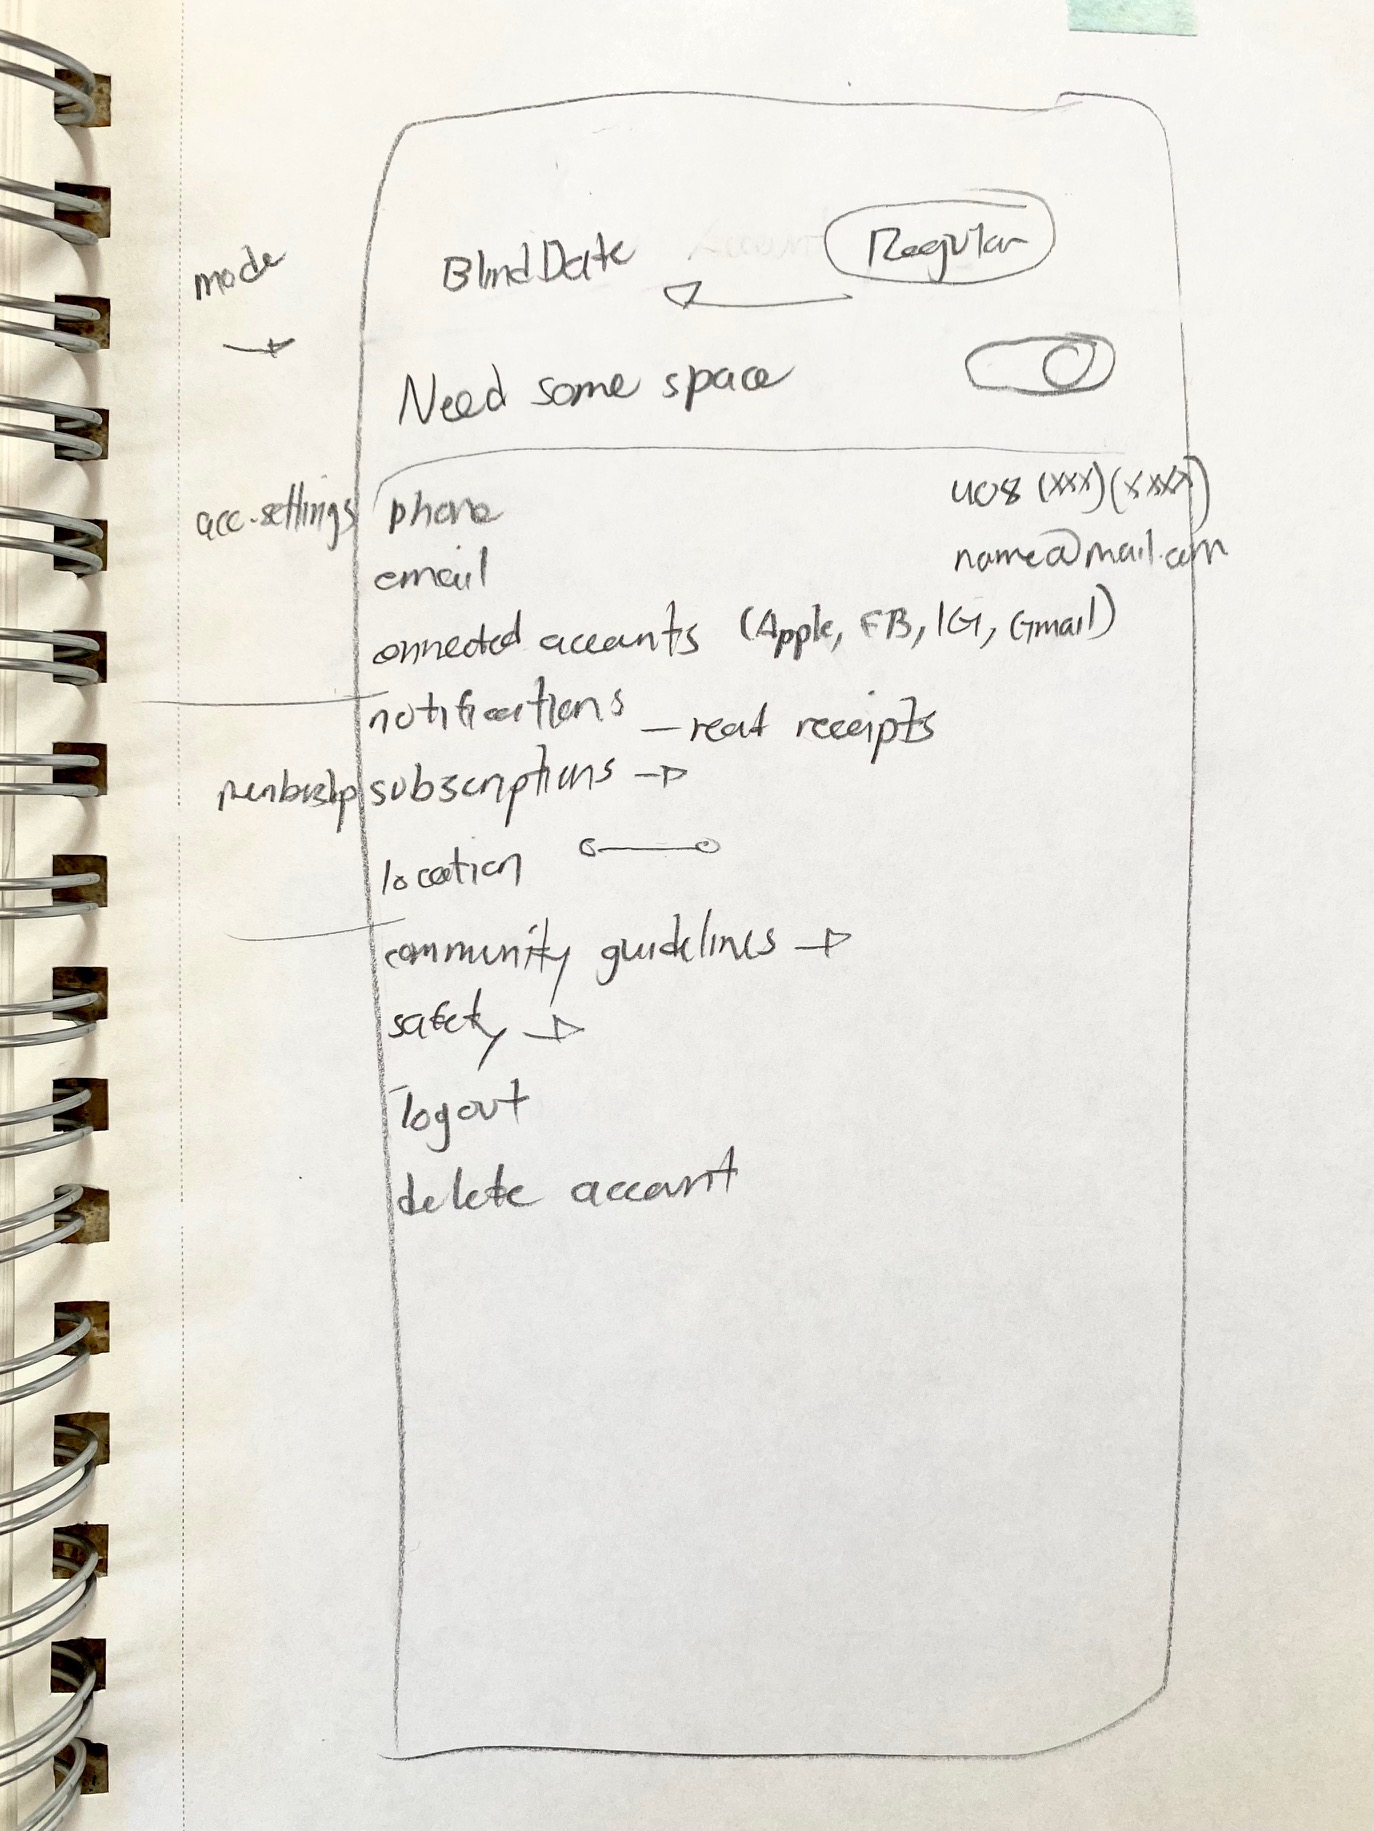 mode
BlindDate Regular
Need some space
acc-settings phone 408 (xxx)(xxxx)
email name@mail.com
onnected accounts (Apple, FB, IG, Gmail)
notifications - read receipts
subscriptions
location
community guidelines
safety
logout
delete account